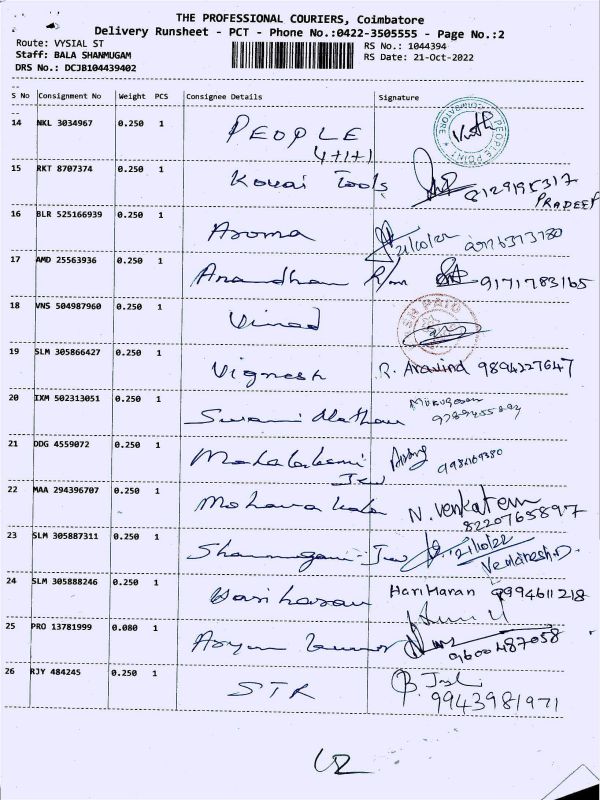 THE PROFESSIONAL COURIERS, Coimbatore
Delivery Runsheet - PCT - Phone No.:0422-3505555 - Page No.:2
Route: VYSIAL ST
RS No.: 1044394
Staff: BALA SHANMUGAM
RS Date: 21-Oct-2022
DRS No.: DCJB104439402
S No Consignment No Weight PCS Consignee Details Signature
14 NKL 3034967 0.250 1 PEOPLE
4+1+1
COIMBATORE PEOPLE POINT
15 RKT 8707374 0.250 1 Kovai Tools
PRADEEP
16 BLR 525166939 0.250 1 Aroma 21/10/22
17 AMD 25563936 0.250 1 Anandhan R/m 9171783165
18 VNS 504987960 0.250 1 Vinod
19 SLM 305866427 0.250 1 Vignesh R. Aravind 9894227647
20 IXM 502313051 0.250 1 Swami Nathan Murugesan
21 DDG 4559072 0.250 1 Mahalakshmi
22 MAA 294396707 0.250 1 Mohana kala N. Venkatesh
8220765897
23 SLM 305887311 0.250 1 Shanmugam 21/10/22
Venkatesh.D.
24 SLM 305888246 0.250 1 Hariharan HariHaran 9994611218
25 PRO 13781999 0.080 1 kumar 9600487058
26 RJY 484245 0.250 1 STR
9943981971